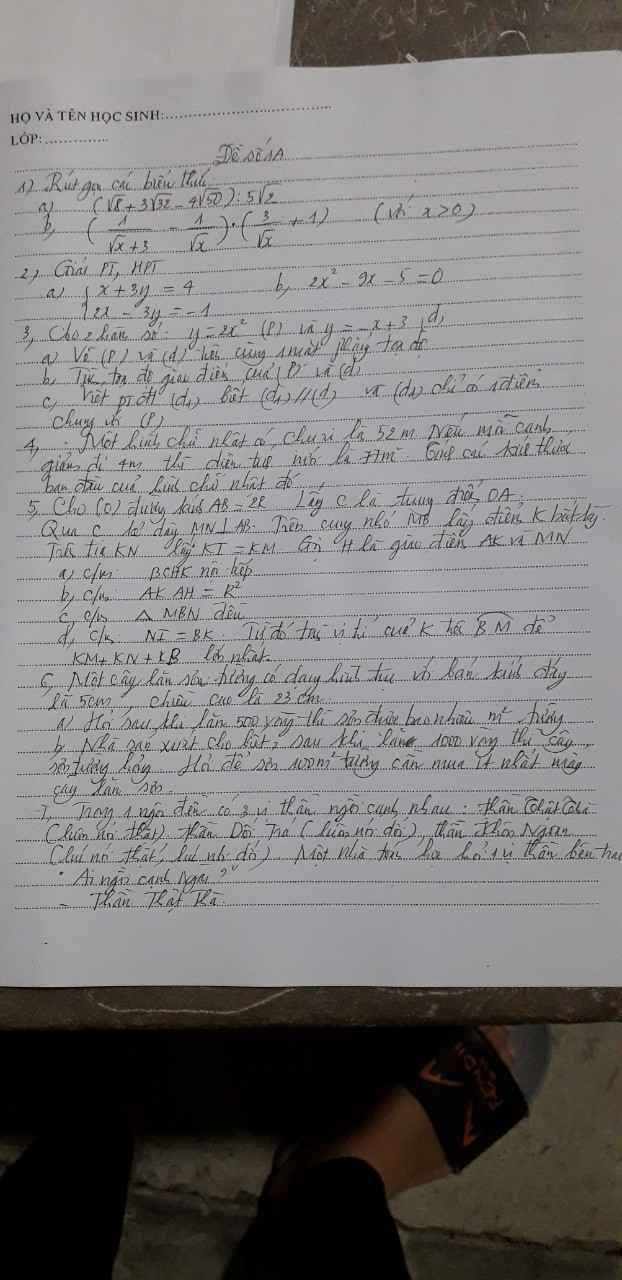 HỌ VÀ TÊN HỌC SINH:
LỚP:
Đề số 1A
1) Rút gọn các biểu thức
a) (√8 + 3√32 - 4√50) : 5√2
b, (1/(√x + 3) - 1/√x) · (3/√x + 1) (với x > 0)
2, Giải PT, HPT
a) { x + 3y = 4 b, 2x² - 9x - 5 = 0
2x - 3y = -1
3, Cho 2 hàm số: y = 2x² (P) và y = -x + 3 (d)
a) Vẽ (P) và (d) trên cùng 1 mặt phẳng tọa độ
b, Tìm tọa độ giao điểm của (P) và (d)
c, Viết ptđt (d₁) biết (d₁) // (d) và (d₁) chỉ có 1 điểm
chung với (P)
4, Một hình chữ nhật có chu vi là 52 m. Nếu mỗi cạnh
giảm đi 4m thì diện tích mới là 77m². Tính các kích thước
ban đầu của hình chữ nhật đó
5. Cho (O) đường kính AB = 2R Lấy C là trung điểm OA
Qua C kẻ dây MN ⊥ AB. Trên cung nhỏ MB lấy điểm K bất kỳ.
Trên tia KN lấy KI = KM. Gọi H là giao điểm AK và MN
a, c/m BCHK nội tiếp
b, c/m AK.AH = R²
c, c/m △ MBN đều
d, c/m NI = BK. Từ đó tìm vị trí của K trên BM để
KM + KN + KB lớn nhất.
6, Một cây lăn sơn tường có dạng hình trụ với bán kính đáy
là 5cm, chiều cao là 23 cm.
a) Hỏi sau khi lăn 500 vòng thì sơn được bao nhiêu m² tường
b, Nhà sản xuất cho biết, sau khi lăn 1000 vòng thì cây
sơn tường hỏng. Hỏi để sơn 100m² tường cần mua ít nhất mấy
cây lăn sơn.
7, Trong 1 ngôi đền có 3 vị thần ngồi cạnh nhau: thần Thật Thà
(luôn nói thật). thần Dối Trá (luôn nói dối), thần Khôn Ngoan
(lúc nói thật, lúc nói dối). Một nhà toán học hỏi 1 vị thần bên trái
"Ai ngồi cạnh Ngài?"
- Thần Thật Thà.